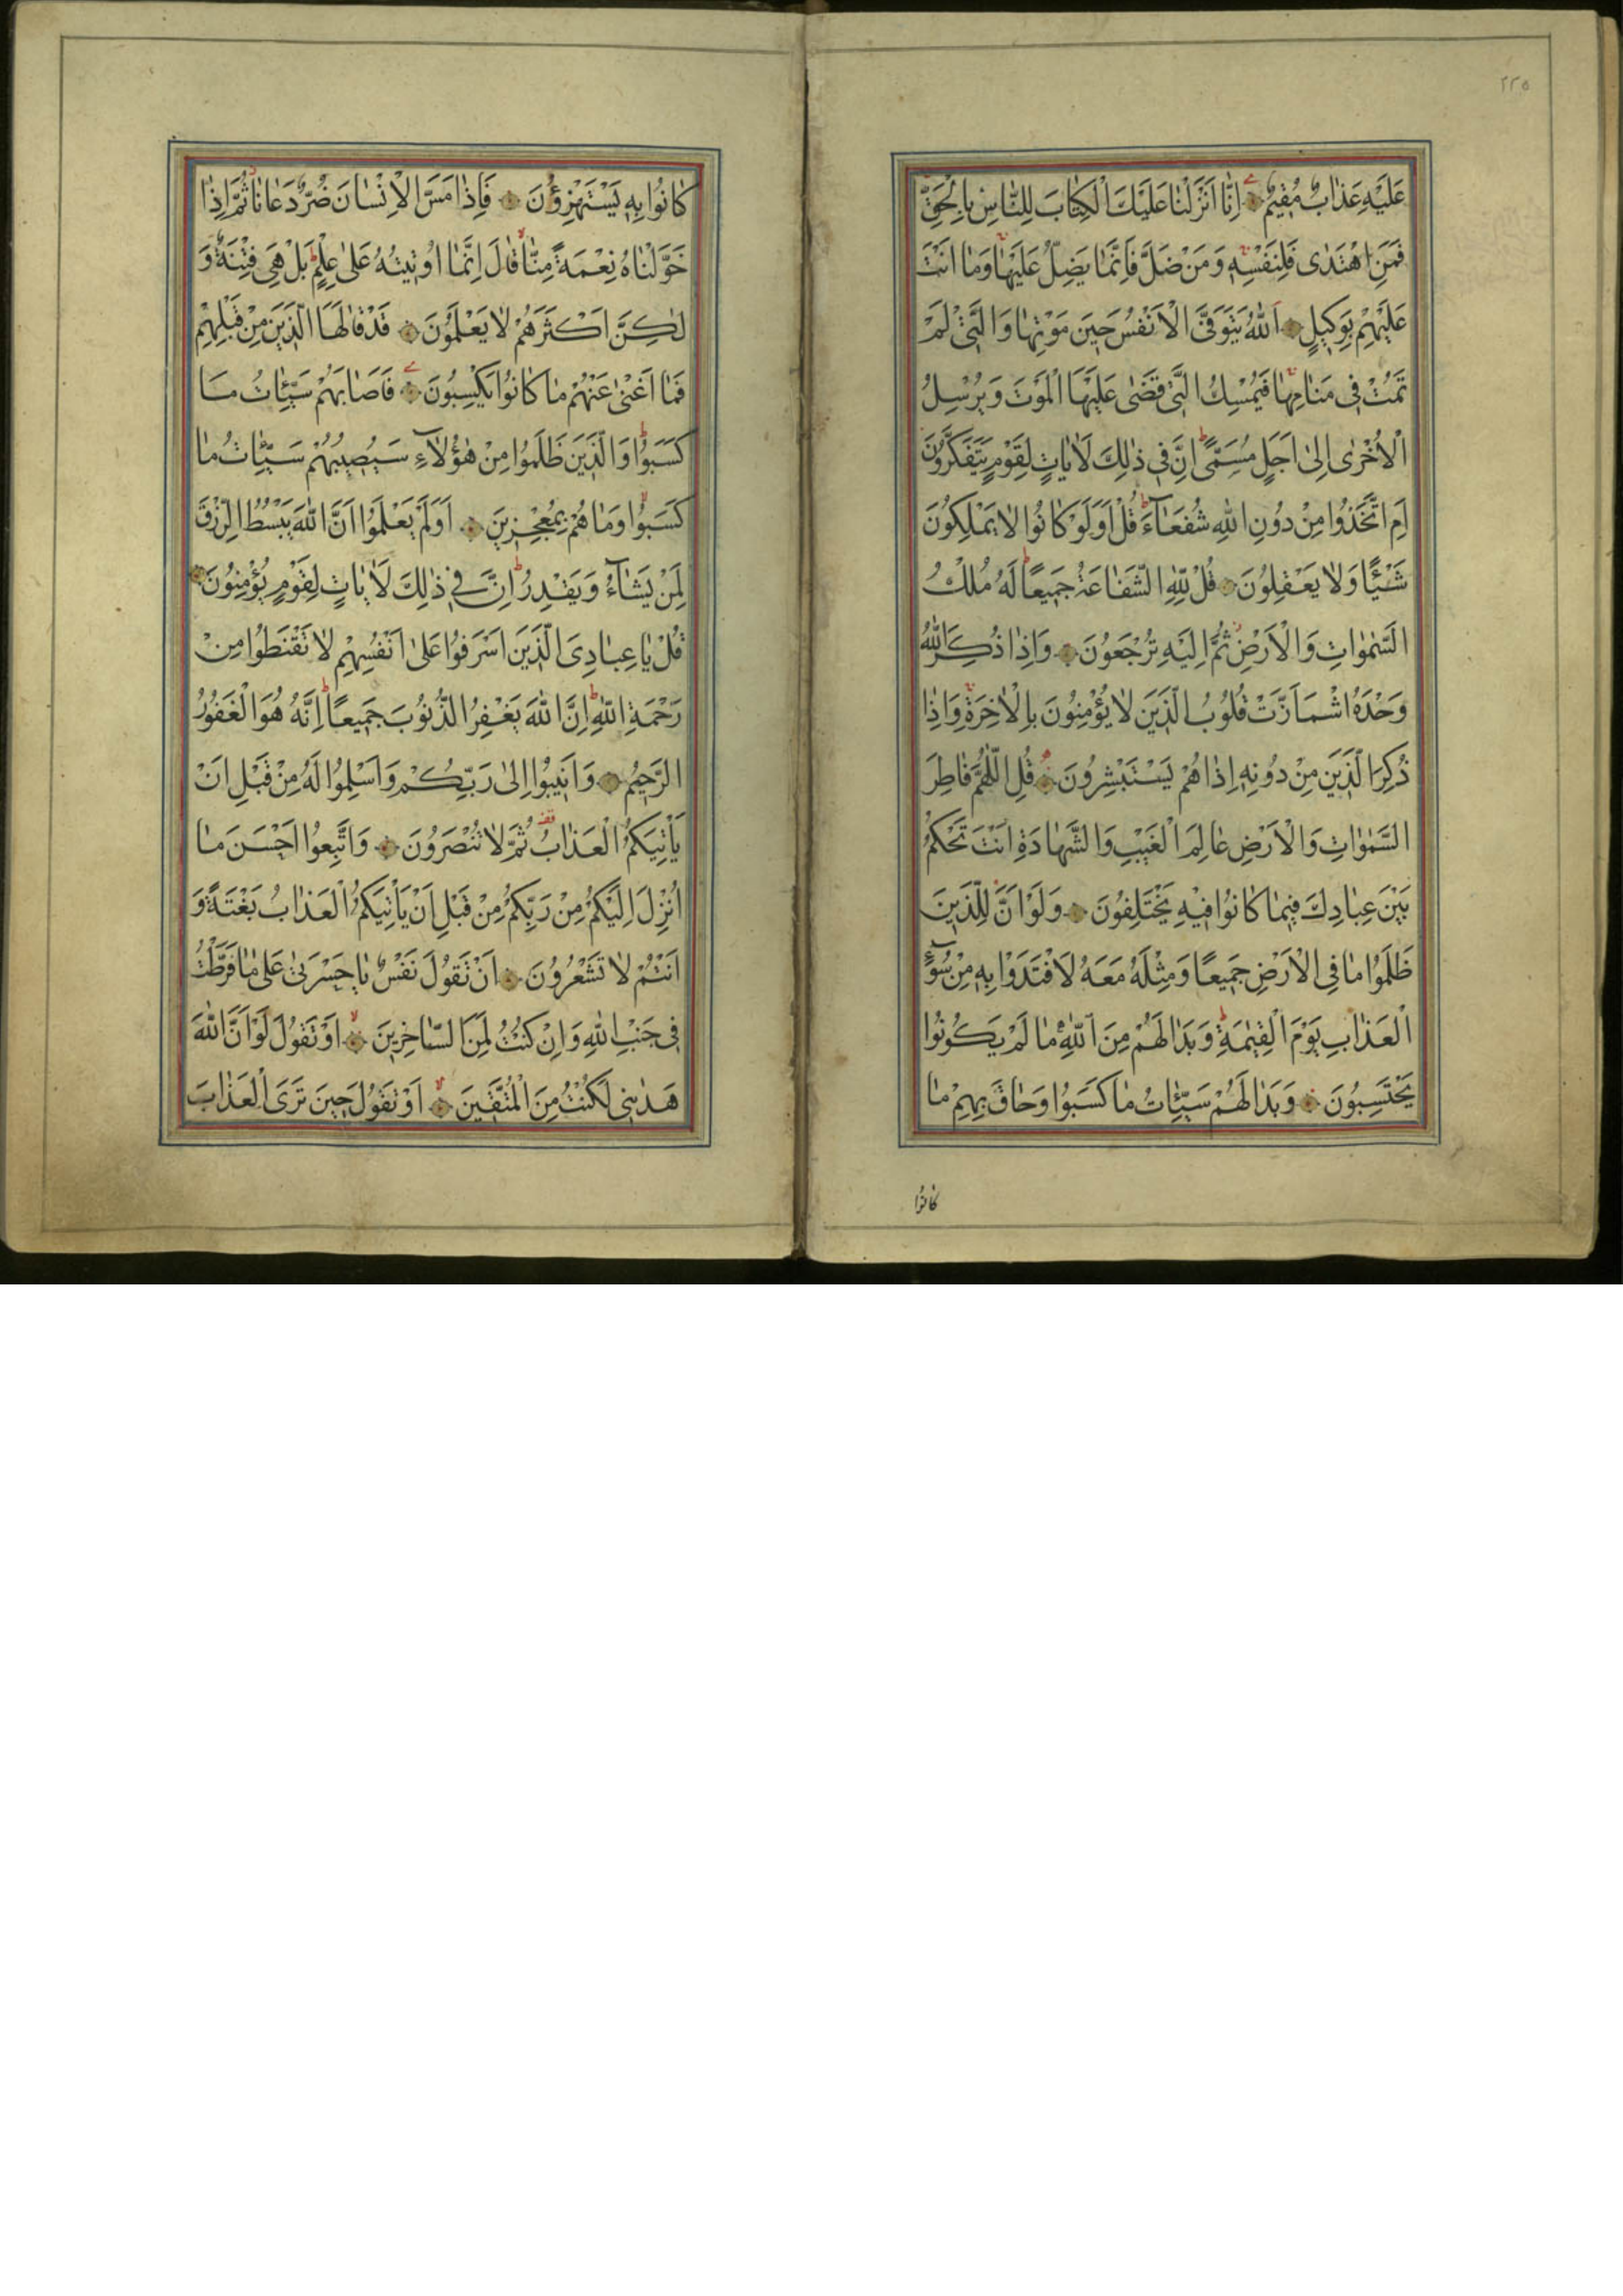 ٢٢٥
عَلَيْهِ عَذَابٌ مُقِيمٌ اِنَّا اَنْزَلْنَا عَلَيْكَ الْكِتَابَ لِلنَّاسِ بِالْحَقِّ
فَمَنِ اهْتَدٰى فَلِنَفْسِهِ وَمَنْ ضَلَّ فَاِنَّمَا يَضِلُّ عَلَيْهَا وَمَا اَنْتَ
عَلَيْهِمْ بِوَكِيلٍ اَللّٰهُ يَتَوَفَّى الْاَنْفُسَ حِينَ مَوْتِهَا وَالَّتِى لَمْ
تَمُتْ فِى مَنَامِهَا فَيُمْسِكُ الَّتِى قَضٰى عَلَيْهَا الْمَوْتَ وَيُرْسِلُ
الْاُخْرٰى اِلٰى اَجَلٍ مُسَمًّى اِنَّ فِى ذٰلِكَ لَاٰيَاتٍ لِقَوْمٍ يَتَفَكَّرُونَ
اَمِ اتَّخَذُوا مِنْ دُونِ اللّٰهِ شُفَعَآءَ قُلْ اَوَلَوْ كَانُوا لَا يَمْلِكُونَ
شَيْئًا وَلَا يَعْقِلُونَ قُلْ لِلّٰهِ الشَّفَاعَةُ جَمِيعًا لَهُ مُلْكُ
السَّمٰوَاتِ وَالْاَرْضِ ثُمَّ اِلَيْهِ تُرْجَعُونَ وَاِذَا ذُكِرَ اللّٰهُ
وَحْدَهُ اشْمَاَزَّتْ قُلُوبُ الَّذِينَ لَا يُؤْمِنُونَ بِالْاٰخِرَةِ وَاِذَا
ذُكِرَ الَّذِينَ مِنْ دُونِهِ اِذَا هُمْ يَسْتَبْشِرُونَ قُلِ اللّٰهُمَّ فَاطِرَ
السَّمٰوَاتِ وَالْاَرْضِ عَالِمَ الْغَيْبِ وَالشَّهَادَةِ اَنْتَ تَحْكُمُ
بَيْنَ عِبَادِكَ فِيمَا كَانُوا فِيهِ يَخْتَلِفُونَ وَلَوْ اَنَّ لِلَّذِينَ
ظَلَمُوا مَا فِى الْاَرْضِ جَمِيعًا وَمِثْلَهُ مَعَهُ لَافْتَدَوْا بِهِ مِنْ سُوٓءِ
الْعَذَابِ يَوْمَ الْقِيٰمَةِ وَبَدَا لَهُمْ مِنَ اللّٰهِ مَا لَمْ يَكُونُوا
يَحْتَسِبُونَ وَبَدَا لَهُمْ سَيِّئَاتُ مَا كَسَبُوا وَحَاقَ بِهِمْ مَا
كانوا
كَانُوا بِهِ يَسْتَهْزِؤُنَ فَاِذَا مَسَّ الْاِنْسَانَ ضُرٌّ دَعَانَا ثُمَّ اِذَا
خَوَّلْنَاهُ نِعْمَةً مِنَّا قَالَ اِنَّمَا اُوتِيتُهُ عَلٰى عِلْمٍ بَلْ هِىَ فِتْنَةٌ وَ
لٰكِنَّ اَكْثَرَهُمْ لَا يَعْلَمُونَ قَدْ قَالَهَا الَّذِينَ مِنْ قَبْلِهِمْ
فَمَا اَغْنٰى عَنْهُمْ مَا كَانُوا يَكْسِبُونَ فَاَصَابَهُمْ سَيِّئَاتُ مَا
كَسَبُوا وَالَّذِينَ ظَلَمُوا مِنْ هٰؤُلَآءِ سَيُصِيبُهُمْ سَيِّئَاتُ مَا
كَسَبُوا وَمَا هُمْ بِمُعْجِزِينَ اَوَلَمْ يَعْلَمُوا اَنَّ اللّٰهَ يَبْسُطُ الرِّزْقَ
لِمَنْ يَشَآءُ وَيَقْدِرُ اِنَّ فِى ذٰلِكَ لَاٰيَاتٍ لِقَوْمٍ يُؤْمِنُونَ
قُلْ يَا عِبَادِىَ الَّذِينَ اَسْرَفُوا عَلٰى اَنْفُسِهِمْ لَا تَقْنَطُوا مِنْ
رَحْمَةِ اللّٰهِ اِنَّ اللّٰهَ يَغْفِرُ الذُّنُوبَ جَمِيعًا اِنَّهُ هُوَ الْغَفُورُ
الرَّحِيمُ وَاَنِيبُوا اِلٰى رَبِّكُمْ وَاَسْلِمُوا لَهُ مِنْ قَبْلِ اَنْ
يَاْتِيَكُمُ الْعَذَابُ ثُمَّ لَا تُنْصَرُونَ وَاتَّبِعُوا اَحْسَنَ مَا
اُنْزِلَ اِلَيْكُمْ مِنْ رَبِّكُمْ مِنْ قَبْلِ اَنْ يَاْتِيَكُمُ الْعَذَابُ بَغْتَةً وَ
اَنْتُمْ لَا تَشْعُرُونَ اَنْ تَقُولَ نَفْسٌ يَا حَسْرَتٰى عَلٰى مَا فَرَّطْتُ
فِى جَنْبِ اللّٰهِ وَاِنْ كُنْتُ لَمِنَ السَّاخِرِينَ اَوْ تَقُولَ لَوْ اَنَّ اللّٰهَ
هَدٰينِى لَكُنْتُ مِنَ الْمُتَّقِينَ اَوْ تَقُولَ حِينَ تَرَى الْعَذَابَ